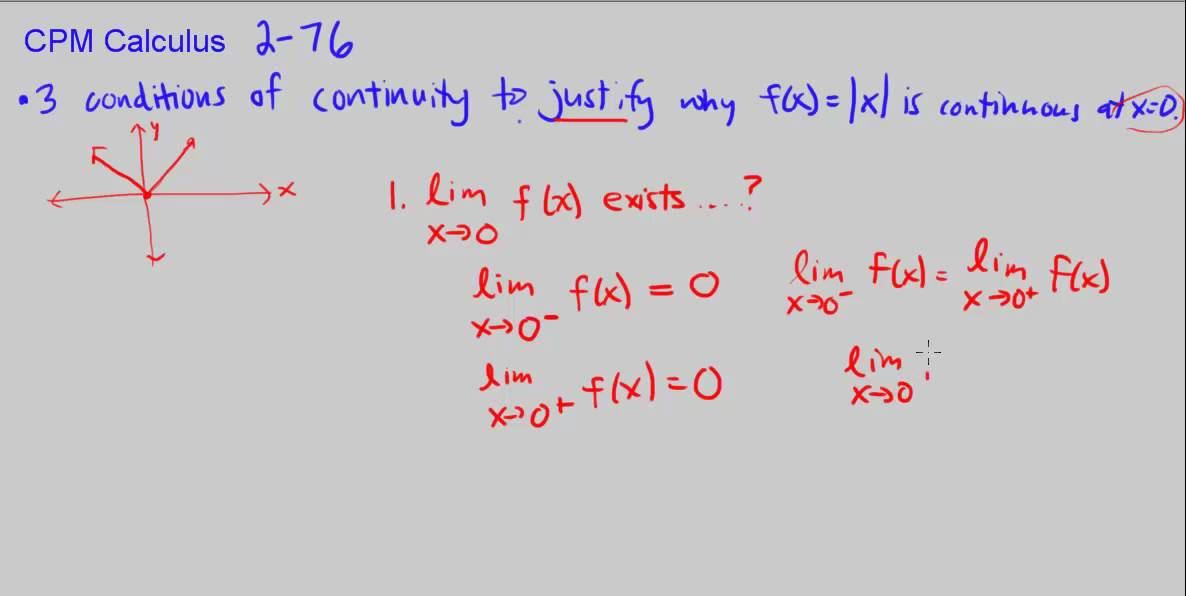 CPM Calculus 2-76
• 3 conditions of continuity to justify why f(x) = |x| is continuous at x=0.
y
x
1. lim f(x) exists....?
x→0
lim f(x) = 0
x→0⁻
lim f(x) = lim f(x)
x→0⁻ x→0⁺
lim f(x) = 0
x→0⁺
lim
x→0